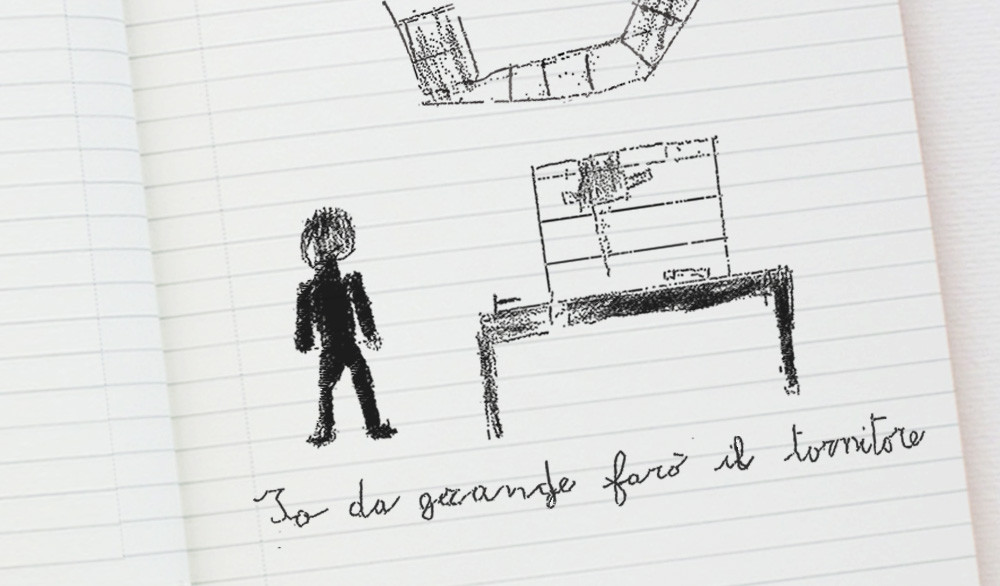 Io da grande farò il tornitore